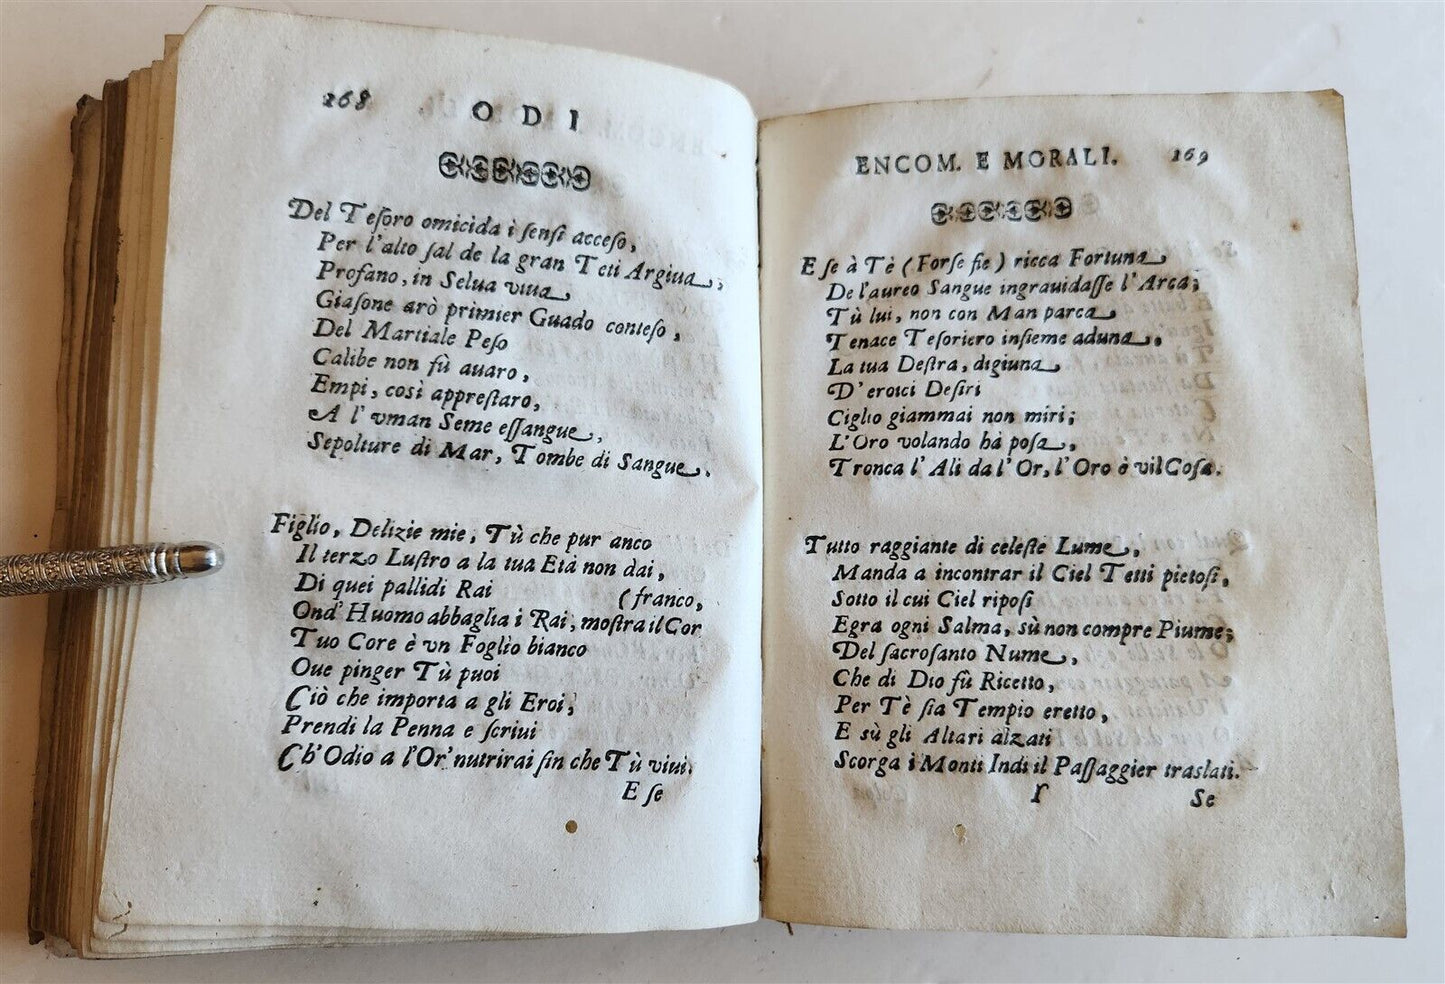 168 ODI
Del Teſoro omicida i ſenſi acceſo,
Per l'alto ſal de la gran Teti Argiua,
Profano, in Selua viua
Giaſone arò primier Guado conteſo,
Del Martiale Peſo
Calibe non fù auaro,
Empi, così appreſtaro,
A l'vman Seme eſſangue,
Sepolture di Mar, Tombe di Sangue.
Figlio, Delizie mie, Tù che pur anco
Il terzo Luſtro a la tua Età non dai,
Di quei pallidi Rai (franco,
Ond' Huomo abbaglia i Rai, moſtra il Cor
Tuo Core è vn Foglio bianco
Oue pinger Tù puoi
Ciò che importa a gli Eroi,
Prendi la Penna e ſcriui
Ch'Odio a l'Or' nutrirai fin che Tù viui.
E ſe
ENCOM. E MORALI. 169
E ſe à Tè (Forſe fie) ricca Fortuna
De l'aureo Sangue ingrauidaſſe l'Arca;
Tù lui, non con Man parca
Tenace Teſoriero inſieme aduna,
La tua Deſtra, digiuna
D'eroici Deſiri
Ciglio giammai non miri;
L'Oro volando hà poſa,
Tronca l'Ali da l'Or, l'Oro è vil Coſa.
Tutto raggiante di celeſte Lume,
Manda a incontrar il Ciel Tetti pietoſi,
Sotto il cui Ciel ripoſi
Egra ogni Salma, sù non compre Piume;
Del ſacroſanto Nume,
Che di Dio fù Ricetto,
Per Tè ſia Tempio eretto,
E sù gli Altari alzati
Scorga i Monti Indi il Paſſaggier traslati.
Se